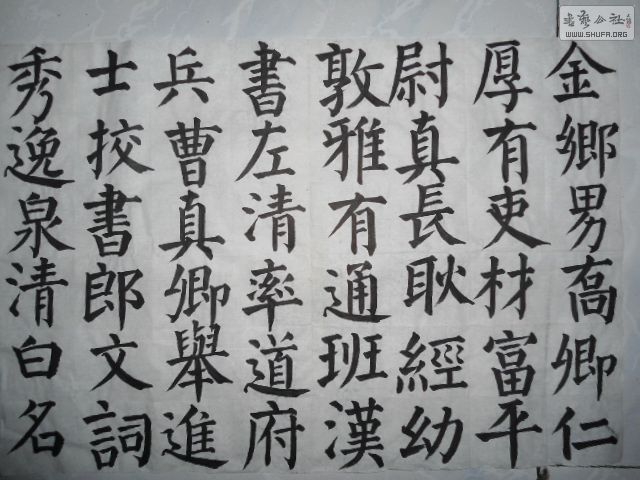 金鄉男高卿仁
厚有吏材富平
尉真長耿經幼
敦雅有通班漢
書左清率道府
兵曹真卿舉進
士挍書郎文詞
秀逸泉清白名
书艺公社
WWW.SHUFA.ORG